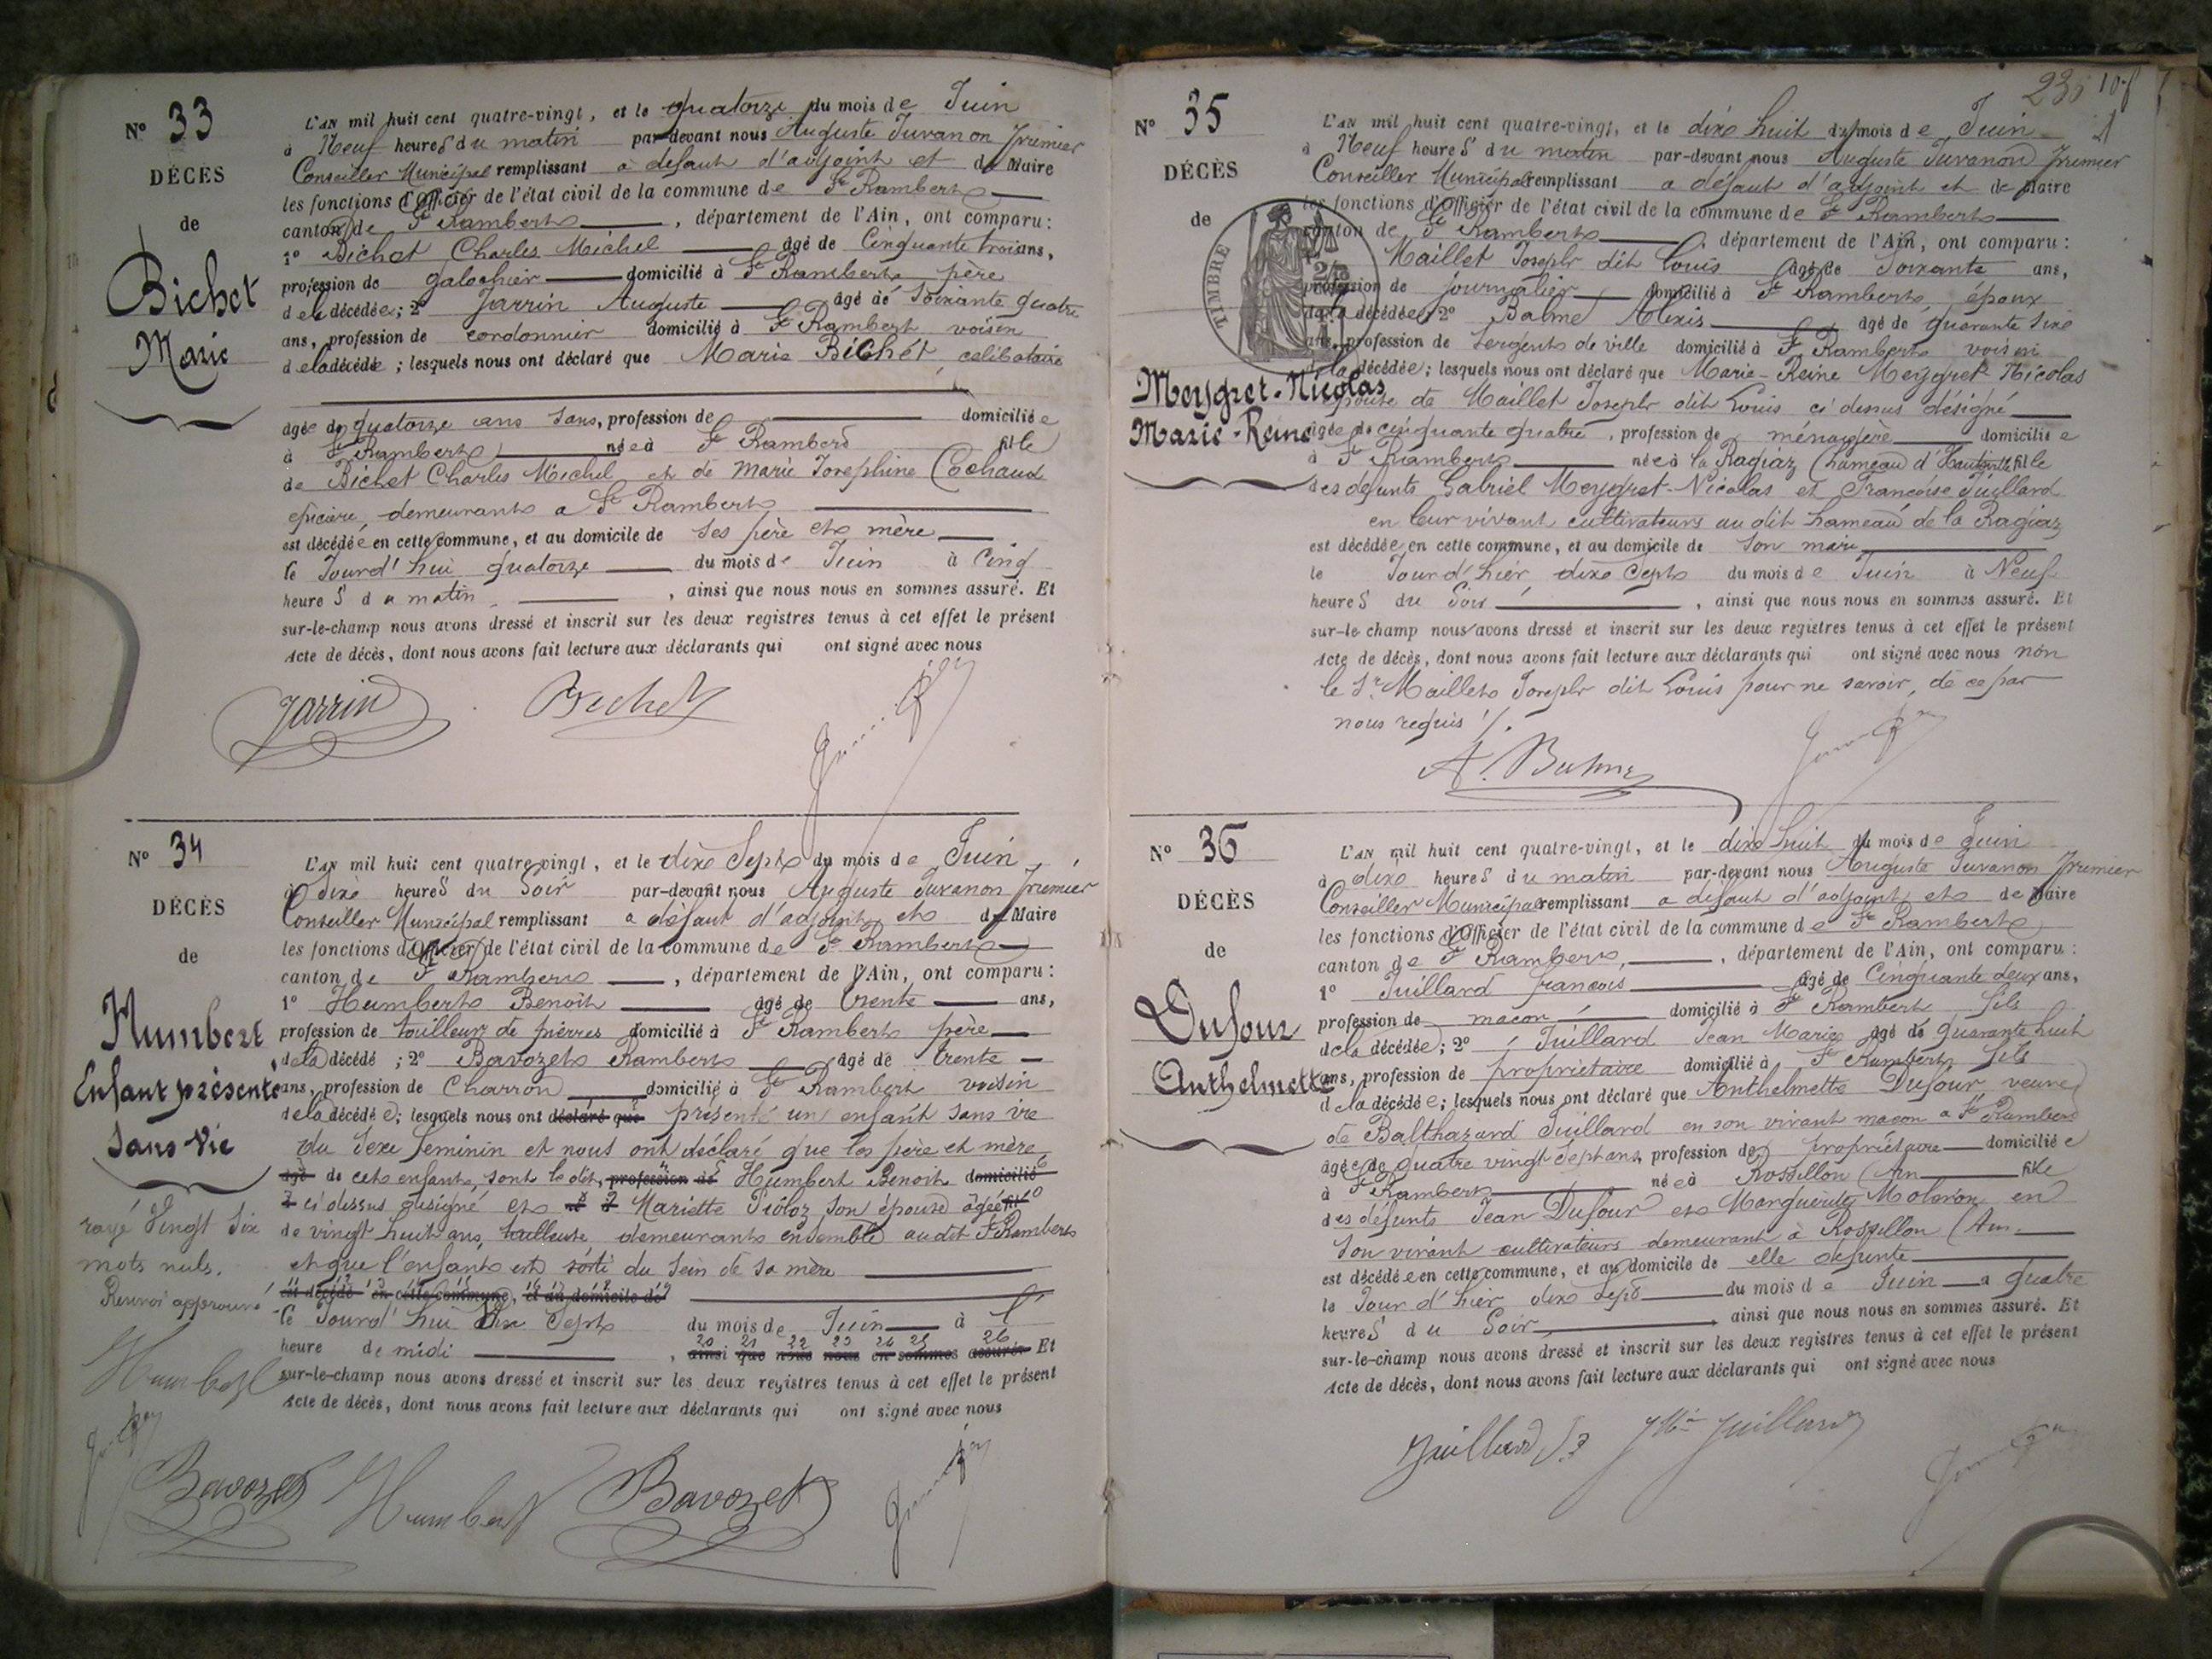 N° 33
DÉCÈS
de
Bichet
Marie
L'AN mil huit cent quatre-vingt, et le quatorze du mois de Juin
à Neuf heures du matin par-devant nous Auguste Juvanon Premier
Conseiller Municipal remplissant à défaut d'adjoint et de Maire
les fonctions d'officier de l'état civil de la commune de St Rambert
canton de St Rambert, département de l'Ain, ont comparu:
1° Bichet Charles Michel âgé de Cinquante trois ans,
profession de galochier domicilié à St Rambert père
de la décédée; 2° Jarrin Auguste âgé de soixante quatre
ans, profession de cordonnier domicilié à St Rambert voisin
de la décédée; lesquels nous ont déclaré que Marie Bichet célibataire
âgée de quatorze ans sans, profession de domiciliée
à St Rambert née à St Rambert fille
de Bichet Charles Michel et de Marie Josephine Cochaux
epicière, demeurants a St Rambert
est décédée en cette commune, et au domicile de ses père et mère
le Jourd'hui quatorze du mois de Juin à Cinq
heures du matin, ainsi que nous nous en sommes assuré. Et
sur-le-champ nous avons dressé et inscrit sur les deux registres tenus à cet effet le présent
Acte de décès, dont nous avons fait lecture aux déclarants qui ont signé avec nous
Jarrin Bichet
N° 34
DÉCÈS
de
Humbert
Enfant présenté
Sans Vie
rayé Vingt six
mots nuls.
Renvoi approuvé
Humbert
L'AN mil huit cent quatre-vingt, et le dix Sept du mois de Juin
à Dix heures du Soir par-devant nous Auguste Juvanon Premier
Conseiller Municipal remplissant a défaut d'adjoint et de Maire
les fonctions d'officier de l'état civil de la commune de St Rambert
canton de St Rambert, département de l'Ain, ont comparu:
1° Humbert Benoit âgé de trente ans,
profession de tailleur de pierres domicilié à St Rambert père
de la décédé; 2° Bavozet Rambert âgé de trente
ans, profession de Charron domicilié à St Rambert voisin
de la décédée; lesquels nous ont déclaré que présenté un enfant sans vie
du sexe feminin et nous ont déclaré que les père et mère
âgé de cet enfant, sont le dit, profession de Humbert Benoit domicilié
ci dessus désigné et Mariette Piôloz son épouse âgée
de vingt huit ans, tailleuse demeurants ensemble audit St Rambert
et que l'enfant est sorti du sein de sa mère
est décédé en cette commune, et au domicile de
le Jourd'hui Dix Sept du mois de Juin à l'
heure de midi, ainsi que nous nous en sommes assuré. Et
20 21 22 23 24 25 26
sur-le-champ nous avons dressé et inscrit sur les deux registres tenus à cet effet le présent
Acte de décès, dont nous avons fait lecture aux déclarants qui ont signé avec nous
Bavozet Humbert Bavozet
N° 35
DÉCÈS
de
TIMBRE
Meygret-Nicolas
Marie-Reine
L'AN mil huit cent quatre-vingt, et le dix huit du mois de Juin
à Neuf heures du matin par-devant nous Auguste Juvanon Premier
Conseiller Municipal remplissant a défaut d'adjoint et de Maire
les fonctions d'Officier de l'état civil de la commune de St Rambert
canton de St Rambert, département de l'Ain, ont comparu:
Maillet Joseph dit Louis âgé de Soixante ans,
profession de journalier domicilié à St Rambert époux
de la décédée; 2° Balme Alexis âgé de quarante six
ans, profession de sergent de ville domicilié à St Rambert voisin
de la décédée; lesquels nous ont déclaré que Marie-Reine Meygret-Nicolas
épouse de Maillet Joseph dit Louis ci dessus désigné
âgée de cinquante quatre, profession de ménagère domiciliée
à St Rambert née à la Ragiaz (hameau d'Hauteville fille
des défunts Gabriel Meygret-Nicolas et Francoise Juillard
en leur vivant cultivateurs au dit hameau de la Ragiaz
est décédée en cette commune, et au domicile de son mari
le Jour d'hier dix sept du mois de Juin à Neuf
heures du Soir, ainsi que nous nous en sommes assuré. Et
sur-le champ nous avons dressé et inscrit sur les deux registres tenus à cet effet le présent
Acte de décès, dont nous avons fait lecture aux déclarants qui ont signé avec nous non
le Sr Maillet Joseph dit Louis pour ne savoir, de ce par
nous requis
N° 36
DÉCÈS
de
Dufour
Anthelmette
L'AN mil huit cent quatre-vingt, et le dix huit du mois de Juin
à dix heures du matin par-devant nous Auguste Juvanon Premier
Conseiller Municipal remplissant a défaut d'adjoint et de Maire
les fonctions d'Officier de l'état civil de la commune de St Rambert
canton de St Rambert, département de l'Ain, ont comparu:
1° Juillard francois âgé de Cinquante deux ans,
profession de macon domicilié à St Rambert fils
de la décédée; 2° Juillard Jean Marie âgé de quarante huit
ans, profession de propriétaire domicilié à St Rambert fils
de la décédée; lesquels nous ont déclaré que Anthelmette Dufour veuve
de Balthazard Juillard en son vivant macon a St Rambert
âgée de quatre vingt sept ans, profession de propriétaire domiciliée
à St Rambert née à Rossillon (Ain fille
des défunts Jean Dufour et Marguerite en
son vivant cultivateurs demeurant à Rossillon (Ain.
est décédée en cette commune, et au domicile de elle defunte
le Jour d'hier dix sept du mois de Juin a quatre
heures du Soir, ainsi que nous nous en sommes assuré. Et
sur-le-champ nous avons dressé et inscrit sur les deux registres tenus à cet effet le présent
Acte de décès, dont nous avons fait lecture aux déclarants qui ont signé avec nous
Juillard Juillard